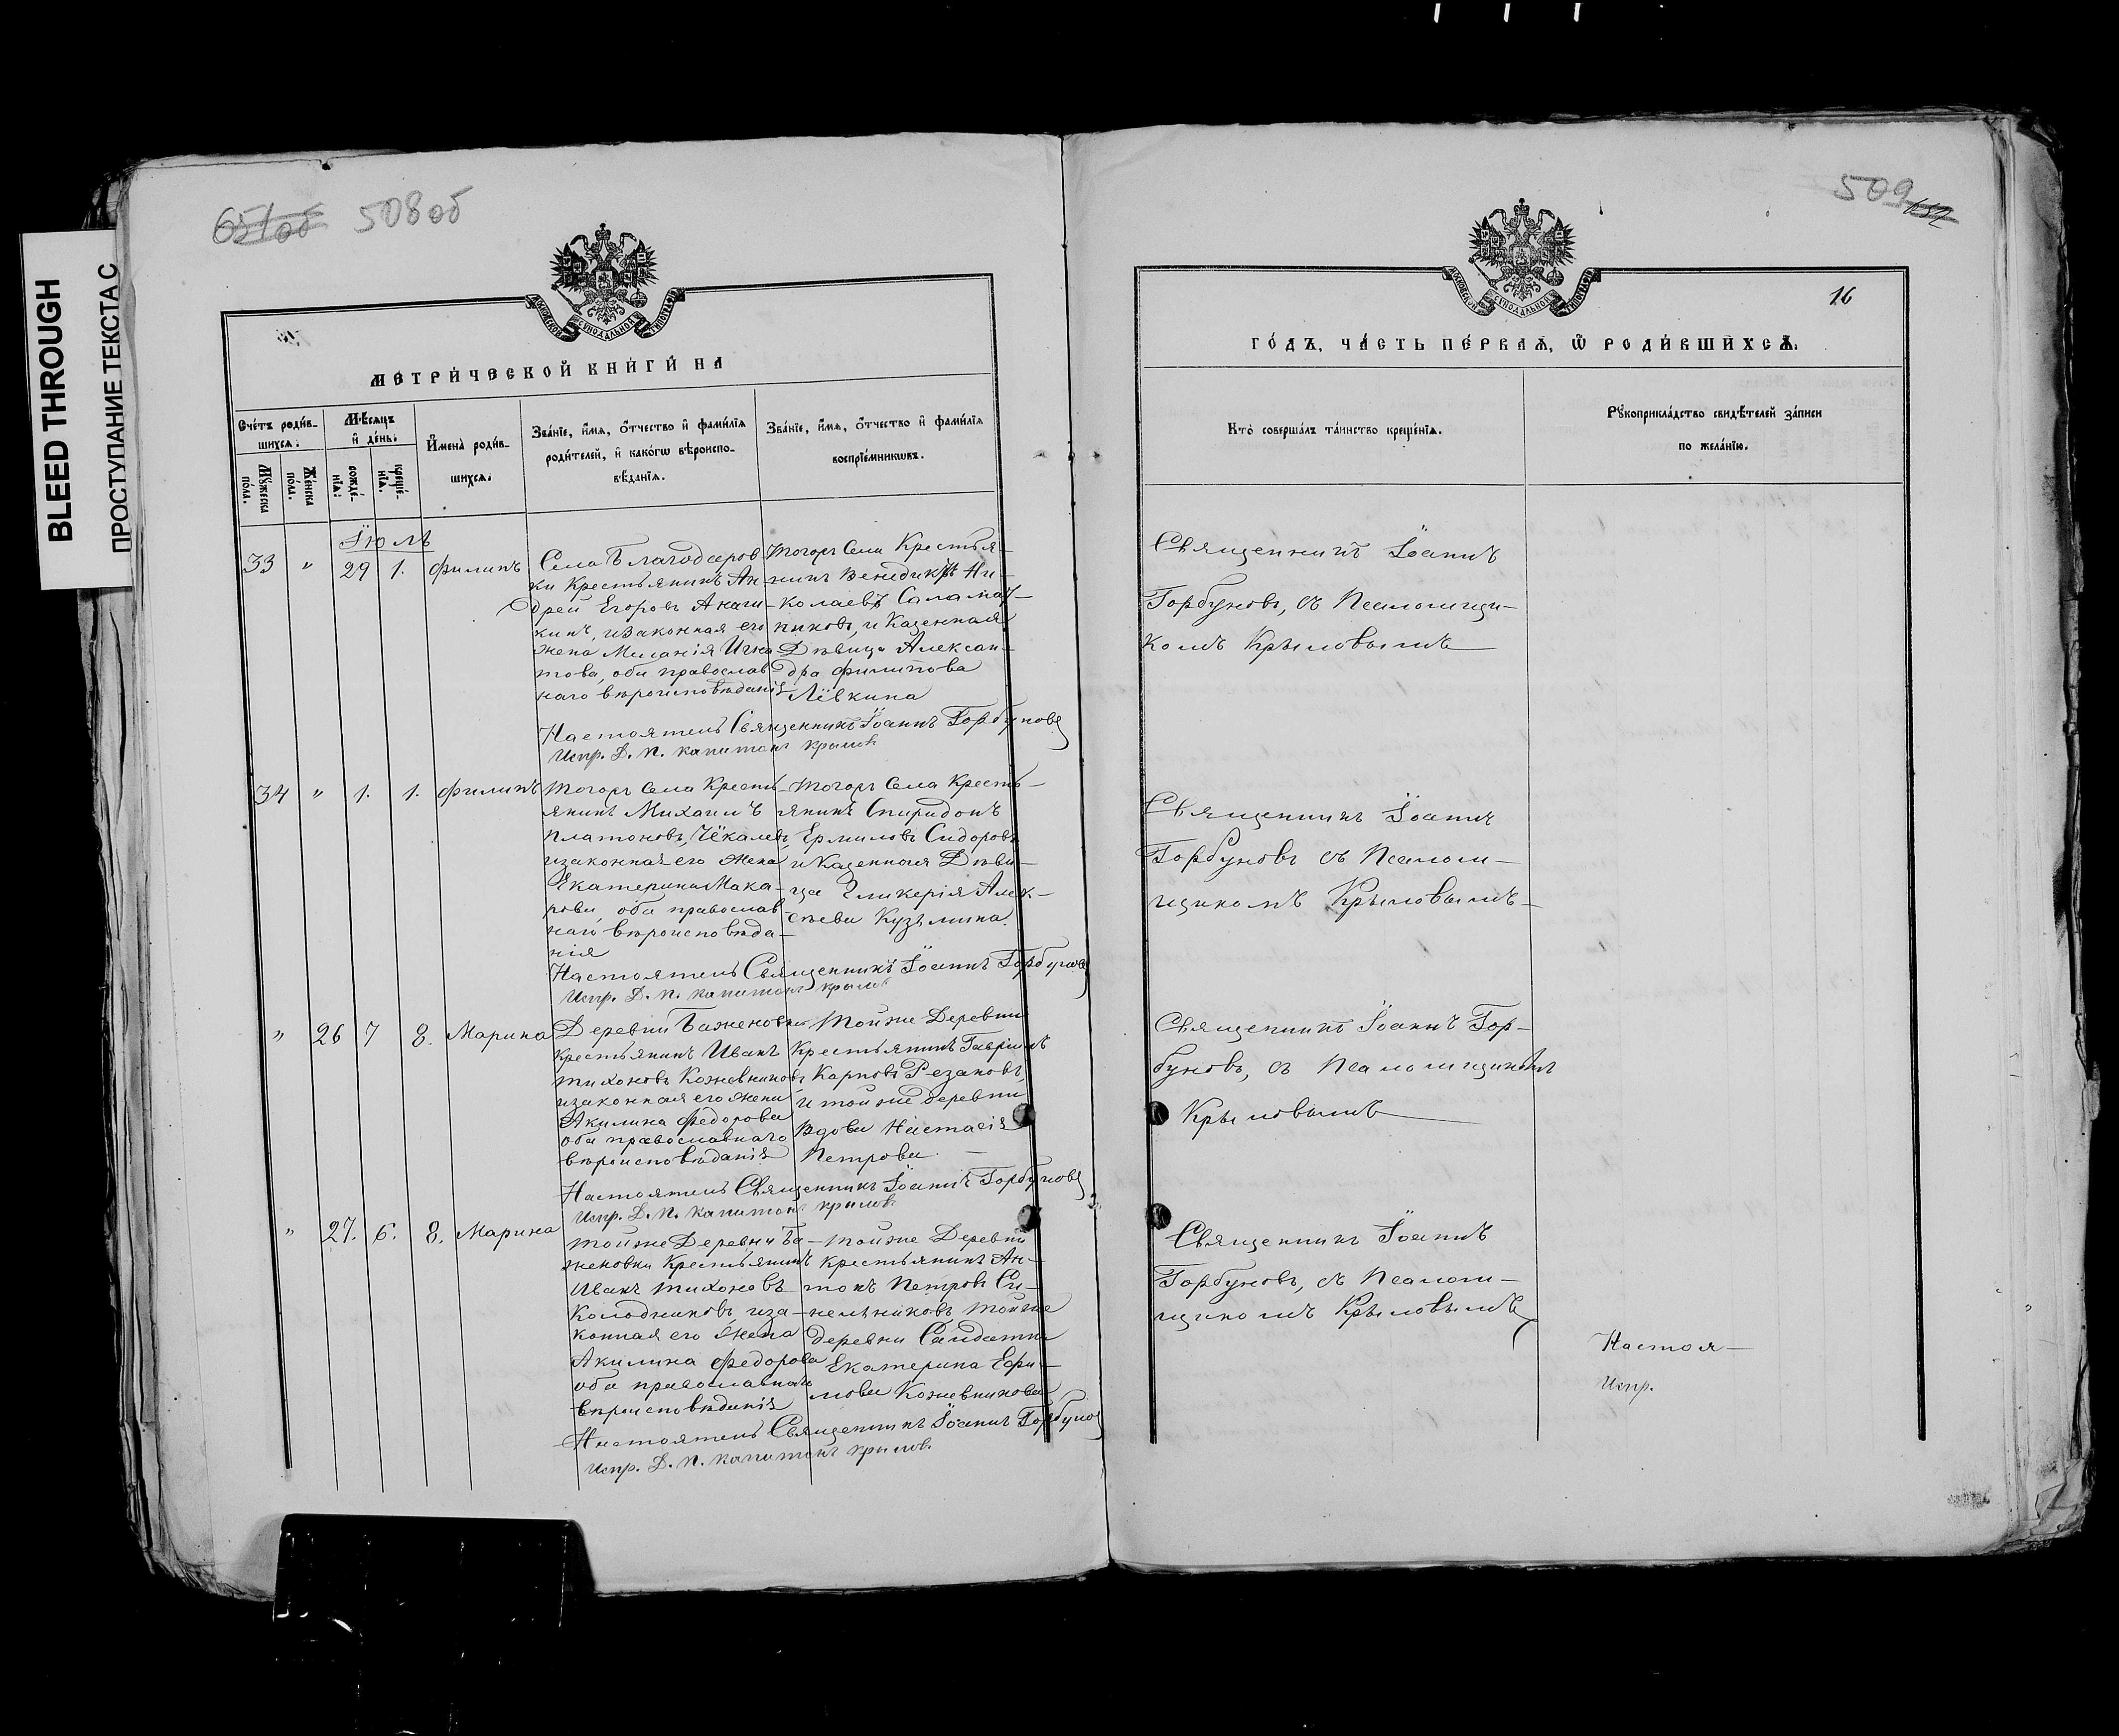 BLEED THROUGH
ПРОСТУПАНИЕ ТЕКСТА С
651об 508об
МОСКОВСКОЙ СѴНОДАЛЬНОЙ ТИПОГРАФІИ
МЕТРИ́ЧЕСКОЙ КНИ́ГИ НА
Сче́тъ роди́в-
шихсѧ:
Мѣ́сѧцъ
и҆ де́нь:
И҆мена̀ роди́в-
шихсѧ:
Зва́нїе, и҆́мѧ, ѻ҆́тчество и҆ фами́лїѧ
роди́телей, и҆ како́гѡ вѣроиспо-
вѣ́данїѧ.
Зва́нїе, и҆́мѧ, ѻ҆́тчество и҆ фами́лїѧ
воспрїе́мникѡвъ.
Мꙋ́жеска
по́ла.
Же́нска
по́ла.
рожде́-
нїѧ:
креще́-
нїѧ.
Їюль
33 " 29 1. Филипъ
Села Благодаров
ки Крестьянинъ Ан-
дрей Егоровъ Акаш-
кинъ, и законная его
жена Меланія Игна
това, оба православ
наго вѣроисповѣданія
Тогожъ Села Крестья-
нинъ Венедиктъ Ни-
колаевъ Саламат-
никовъ, и Казенная
Дѣвица Алексан-
дра Филипова
Лёвкина
Настоятель Священникъ Іоаннъ Горбуновъ
Испр. Д. П. Капитонъ Крыловъ
34 " 1. 1. Филипъ
Тогожъ Села Кресть-
янинъ Михаилъ
Платоновъ Чёкалевъ
и законная его жена
Екатерина Мака-
рова, оба православ-
наго вѣроисповѣда-
нія
Тогожъ Села Кресть-
янинъ Спиридонъ
Ермиловъ Сидоровъ
и Казенная Дѣви-
ца Гликерія Алек-
сѣева Кузьмина.
Настоятель Священникъ Іоаннъ Горбуновъ
Испр. Д. П. Капитонъ Крыловъ
" 26 7 8. Марина
Деревни Баженовки
Крестьянинъ Иванъ
Тихоновъ Кожевниковъ
и законная его жена
Акилина Федорова
оба православнаго
вѣроисповѣданія
Тойже Деревни
Крестьянинъ Гавріилъ
Карповъ Резаковъ,
и тойже деревни
Вдова Настасія
Петрова.
Настоятель Священникъ Іоаннъ Горбуновъ
Испр. Д. П. Капитонъ Крыловъ.
" 27. 6. 8. Марина
Тойже Деревни Ба-
женовки Крестьянинъ
Иванъ Тихоновъ
Колодниковъ, и за-
конная его жена
Акилина Федорова
оба православнаго
вѣроисповѣданія
Тойже Деревни
Крестьянинъ Ан-
тонъ Петровъ Си-
нельниковъ тойже
деревни Салдатка
Екатерина Ефи-
мова Кожевникова
Настоятель Священникъ Іоаннъ Горбунов
Испр. Д. П. Капитонъ Крылов.
509 652
16
МОСКОВСКОЙ СѴНОДАЛЬНОЙ ТИПОГРАФІИ
ГО́ДЪ, ЧА́СТЬ ПЕ́РВАѦ, Ѡ҆ РОДИ́ВШИХСѦ.
Кто̀ соверша́лъ та́инство креще́нїѧ.
Рꙋкоприкла́дство свидѣ́телей за́писи
по жела́нїю.
Священникъ Іоаннъ
Горбуновъ, съ Псаломщи-
комъ Крыловымъ
Священникъ Іоаннъ
Горбуновъ съ Псалом-
щикомъ Крыловымъ
Священникъ Іоаннъ Гор-
буновъ, съ Псаломщикомъ
Крыловымъ
Священникъ Іоаннъ
Горбуновъ, съ Псалом-
щикомъ Крыловымъ
Настоя-
Испр.